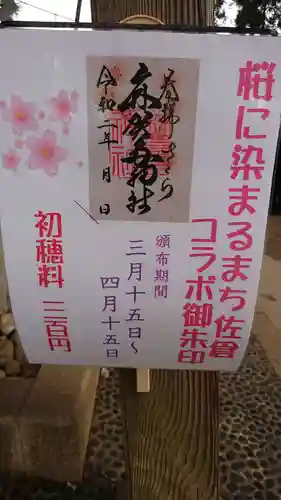 桜に染まるまち佐倉
コラボ御朱印
奉拝 さくら
麻賀多神社
令和二年 月 日
頒布期間
三月十五日～
四月十五日
初穂料 三百円